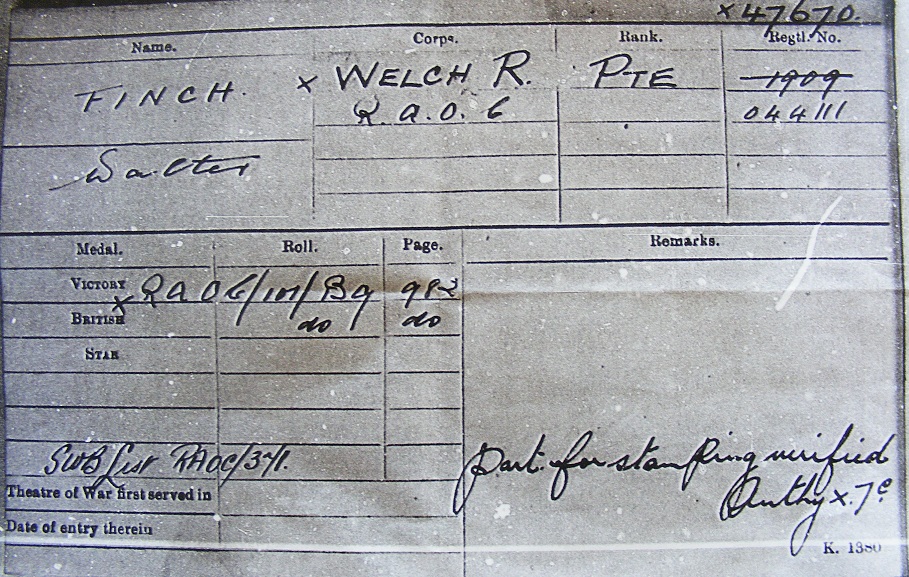 × 47670.
Name. Corps. Rank. Regtl. No.
FINCH. × WELCH R. PTE 1909
R.A.O.C 044111
Walter
Medal. Roll. Page. Remarks.
VICTORY × RAOC/101/B9 982
BRITISH do do
STAR
SWB List RAOC/37/1.
Part. for stamping verified
Theatre of War first served in
Authy ×. 7c
Date of entry therein
K. 1380